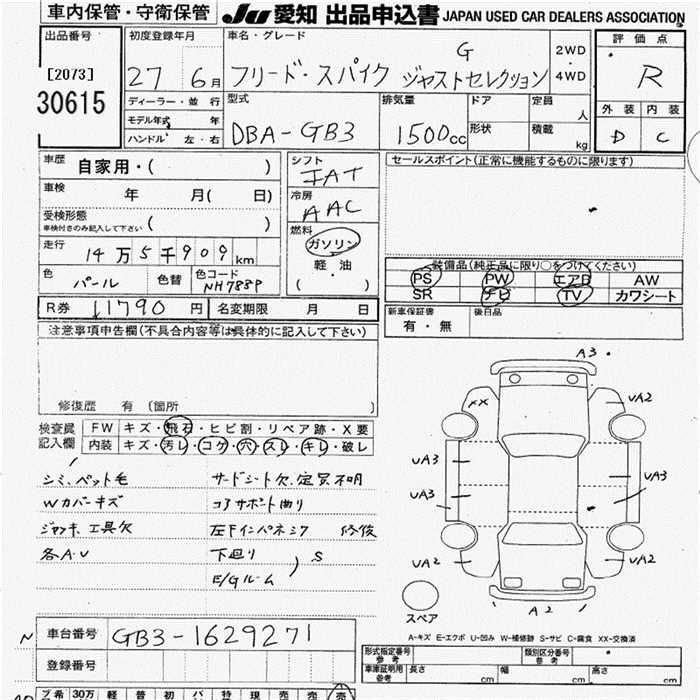 車内保管・守衛保管 JU 愛知 出品申込書 JAPAN USED CAR DEALERS ASSOCIATION
出品番号 初度登録年月 車名・グレード 2WD・4WD 評価点
[2073] 27 6月 フリード・スパイク G ジャストセレクション R
30615
ディーラー・並行 型式 排気量 ドア 定員 人 外装 内装
モデル年式 年 DBA-GB3 1500cc 形状 積載 kg D C
ハンドル 左・右
車歴 自家用・( ) シフト セールスポイント(正常に機能するものに限ります)
車検 年 月( 日) IAT
受検形態 冷房 AAC
車検付きのみ記入して下さい ( )
燃料 ガソリン
走行 14万5千909km 軽・油
色 パール 色替 色コード NH788P ( )
装備品(純正品に限り○をつけてください)
PS PW エアB AW
SR ナビ TV カワシート
R券 11790円 名変期限 月 日
新車保証書 有・無 後日品
注意事項申告欄(不具合内容等は具体的に記入して下さい)
修復歴 有 (箇所
検査員記入欄 FW キズ・飛石・ヒビ割・リペア跡・X要
内装 キズ・汚レ・コゲ・穴・スレ・キレ・破レ
シミ、ペット毛 サードシート欠、定員不明
Wカバーキズ コアサポート曲り
ジャッキ、工具欠 左Fインパネシワ 修復
各A・U 下廻り
E/Gルーム ) S
A3 UA2
XX
UA3
UA3 UA3
UA2 UA2
A2
スペア
A-キズ E-エクボ U-凹み W-補修跡 S-サビ C-腐食 XX-交換済
N 車台番号 GB3-1629271
登録番号
形式指定番号 参考 類別区分番号 参考
車庫証明用 参考 長さ cm 幅 cm 高さ cm